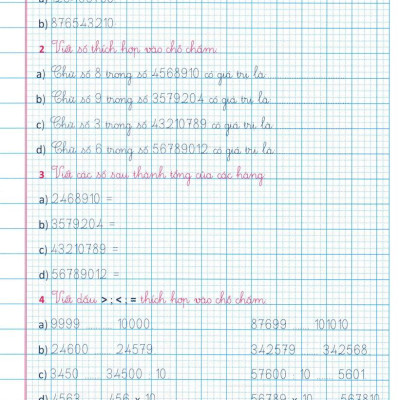 b) 876543210
2 Viết số thích hợp vào chỗ chấm
a) Chữ số 8 trong số 4568910 có giá trị là
b) Chữ số 9 trong số 3579204 có giá trị là
c) Chữ số 3 trong số 43210789 có giá trị là
d) Chữ số 6 trong số 56789012 có giá trị là
3 Viết các số sau thành tổng của các hàng
a) 2468910 =
b) 3579204 =
c) 43210789 =
d) 56789012 =
4 Viết dấu > ; < ; = thích hợp vào chỗ chấm
a) 9999 ...... 10000 87699 ...... 101010
b) 24600 ...... 24579 342579 ...... 342568
c) 3450 ...... 34500 : 10 57600 : 10 ...... 5601
d) 4563 ...... 456 x 10 56789 x 10 ...... 567810